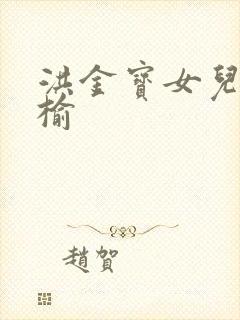 洪金寶女兒
榆
趙賀